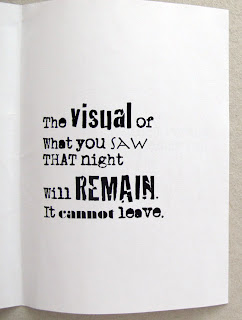 The visual of
What you SAW
THAT night
Will REMAIN.
It cannot leave.